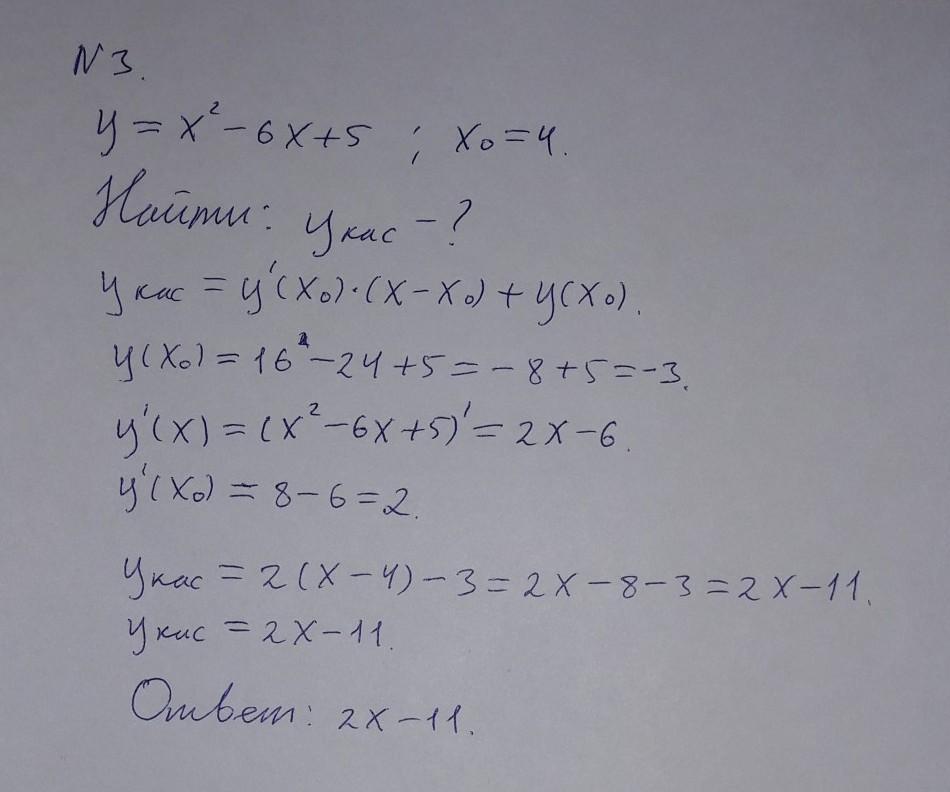 N 3.
y = x² - 6x + 5 ; x₀ = 4.
Найти: yкас - ?
yкас = y'(x₀)·(x - x₀) + y(x₀).
y(x₀) = 16 - 24 + 5 = -8 + 5 = -3.
y'(x) = (x² - 6x + 5)' = 2x - 6.
y'(x₀) = 8 - 6 = 2.
yкас = 2(x - 4) - 3 = 2x - 8 - 3 = 2x - 11.
yкас = 2x - 11.
Ответ: 2x - 11.